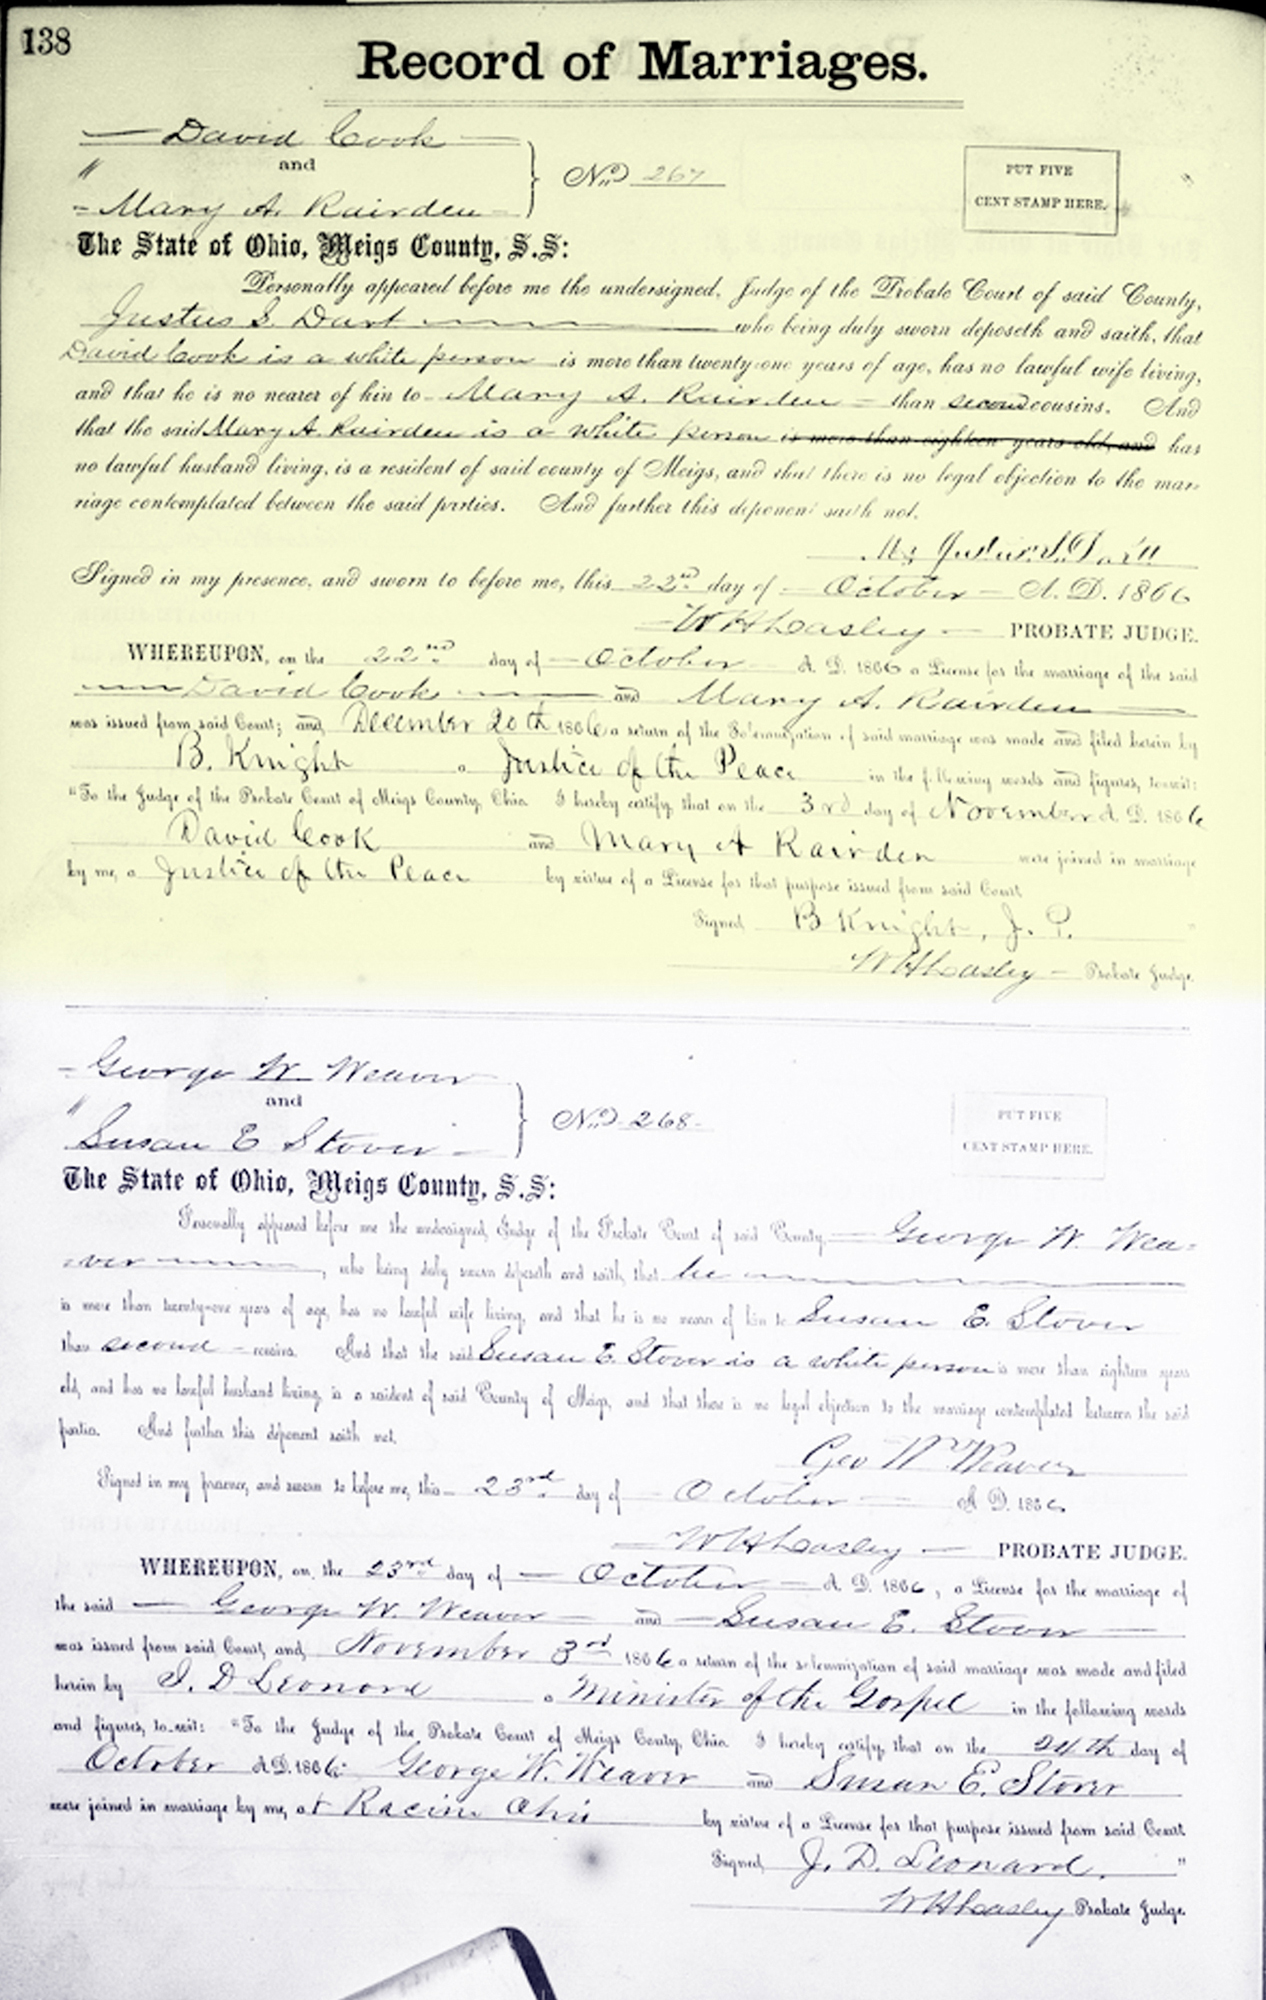 138
Record of Marriages.
David Cook
and
" Mary A. Rairden
No. 267
PUT FIVE
CENT STAMP HERE.
The State of Ohio, Meigs County, S.S:
Personally appeared before me the undersigned, Judge of the Probate Court of said County,
Justus S. Dart who being duly sworn deposeth and saith, that
David Cook is a white person is more than twenty-one years of age, has no lawful wife living,
and that he is no nearer of kin to Mary A. Rairden than second cousins. And
that the said Mary A. Rairden is a white person is more than eighteen years old, and has
no lawful husband living, is a resident of said county of Meigs, and that there is no legal objection to the mar-
riage contemplated between the said parties. And further this deponent saith not.
Signed in my presence, and sworn to before me, this 22nd day of October A. D. 1866
W H Lasley PROBATE JUDGE.
WHEREUPON, on the 22nd day of October A. D. 1866 a License for the marriage of the said
David Cook and Mary A. Rairden
was issued from said Court; and, December 20th 1866 a return of the Solemnization of said marriage was made and filed herein by
B. Knight a Justice of the Peace in the following words and figures, to-wit:
"To the Judge of the Probate Court of Meigs County, Ohio. I hereby certify, that on the 3rd day of November A. D. 1866
David Cook and Mary A Rairden were joined in marriage
by me, a Justice of the Peace by virtue of a License for that purpose issued from said Court
Signed, B Knight, J. P. "
W H Lasley Probate Judge.
George W. Weaver
and
" Susan E Stover
No. 268
PUT FIVE
CENT STAMP HERE.
The State of Ohio, Meigs County, S.S:
Personally appeared before me the undersigned, Judge of the Probate Court of said County, George W. Wea-
ver, who being duly sworn deposeth and saith, that he
is more than twenty-one years of age, has no lawful wife living, and that he is no nearer of kin to Susan E. Stover
than second cousins. And that the said Susan E. Stover is a white person is more than eighteen years
old, and has no lawful husband living, is a resident of said County of Meigs, and that there is no legal objection to the marriage contemplated between the said
parties. And further this deponent saith not.
Geo W Weaver
Signed in my presence, and sworn to before me, this 23rd day of October A. D. 1866
W H Lasley PROBATE JUDGE.
WHEREUPON, on the 23rd day of October A. D. 1866, a License for the marriage of
the said George W. Weaver and Susan E. Stover
was issued from said Court, and, November 3rd 1866 a return of the solemnization of said marriage was made and filed
herein by J. D Leonard a Minister of the Gospel in the following words
and figures, to-wit: "To the Judge of the Probate Court of Meigs County, Ohio. I hereby certify, that on the 24th day of
October A.D. 1866 George W. Weaver and Susan E. Stover
were joined in marriage by me, at Racine Ohio by virtue of a License for that purpose issued from said Court
Signed, J. D. Leonard. "
W H Lasley Probate Judge.